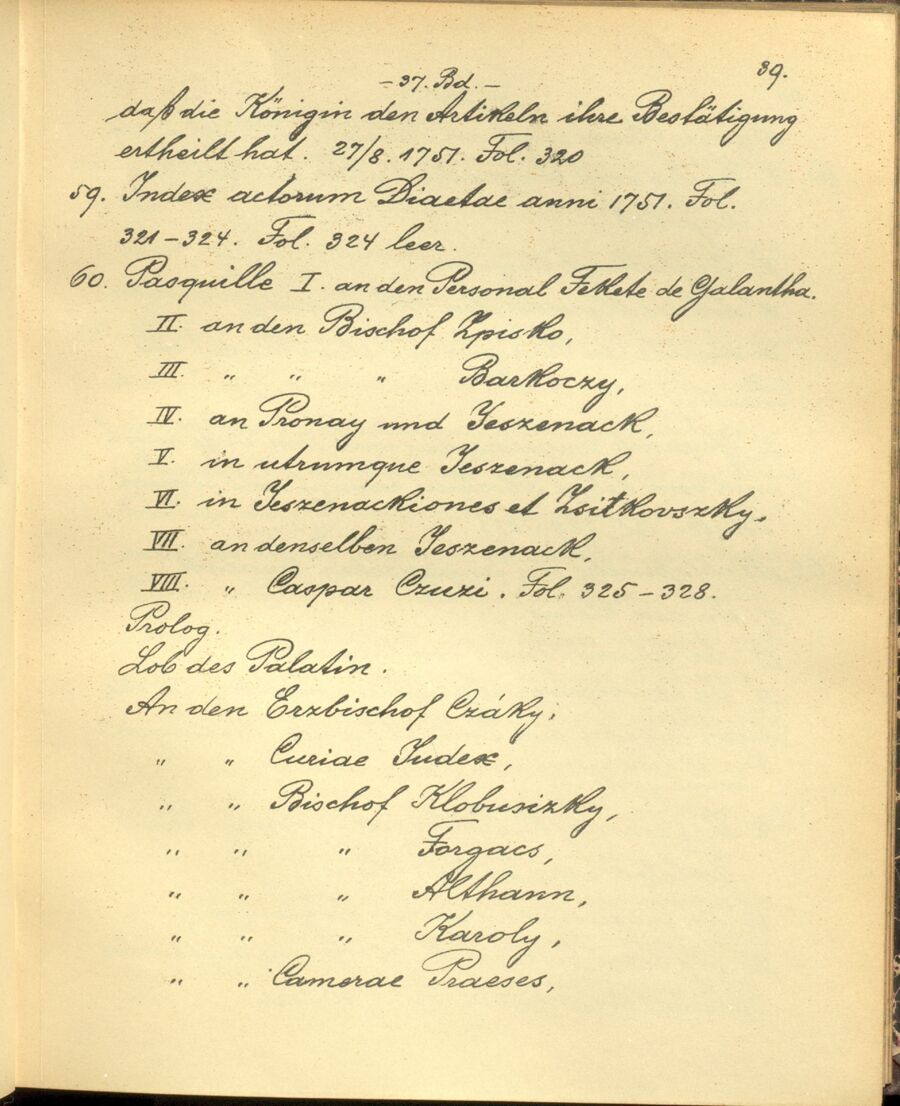 39.
- 37. Bd. -
daß die Königin den Artikeln ihre Bestätigung
ertheilt hat. 27/8. 1751. Fol. 320
59. Index actorum Diaetae anni 1751. Fol.
321-324. Fol. 324 leer.
60. Pasquille I. an den Personal Fekete de Galantha.
II. an den Bischof Zpisko,
III. " " " Barkoczy,
IV. an Pronay und Jeszenack,
V. in utrumque Jeszenack,
VI. in Jeszenackiones et Zsitkovszky.
VII. an denselben Jeszenack.
VIII. " Caspar Czuzi. Fol. 325-328.
Prolog.
Lob des Palatin.
An den Erzbischof Czáky,
" " Curiae Judex,
" " Bischof Klobusizky,
" " " Forgacs,
" " " Althann,
" " " Karoly,
" " Camerae Praeses,